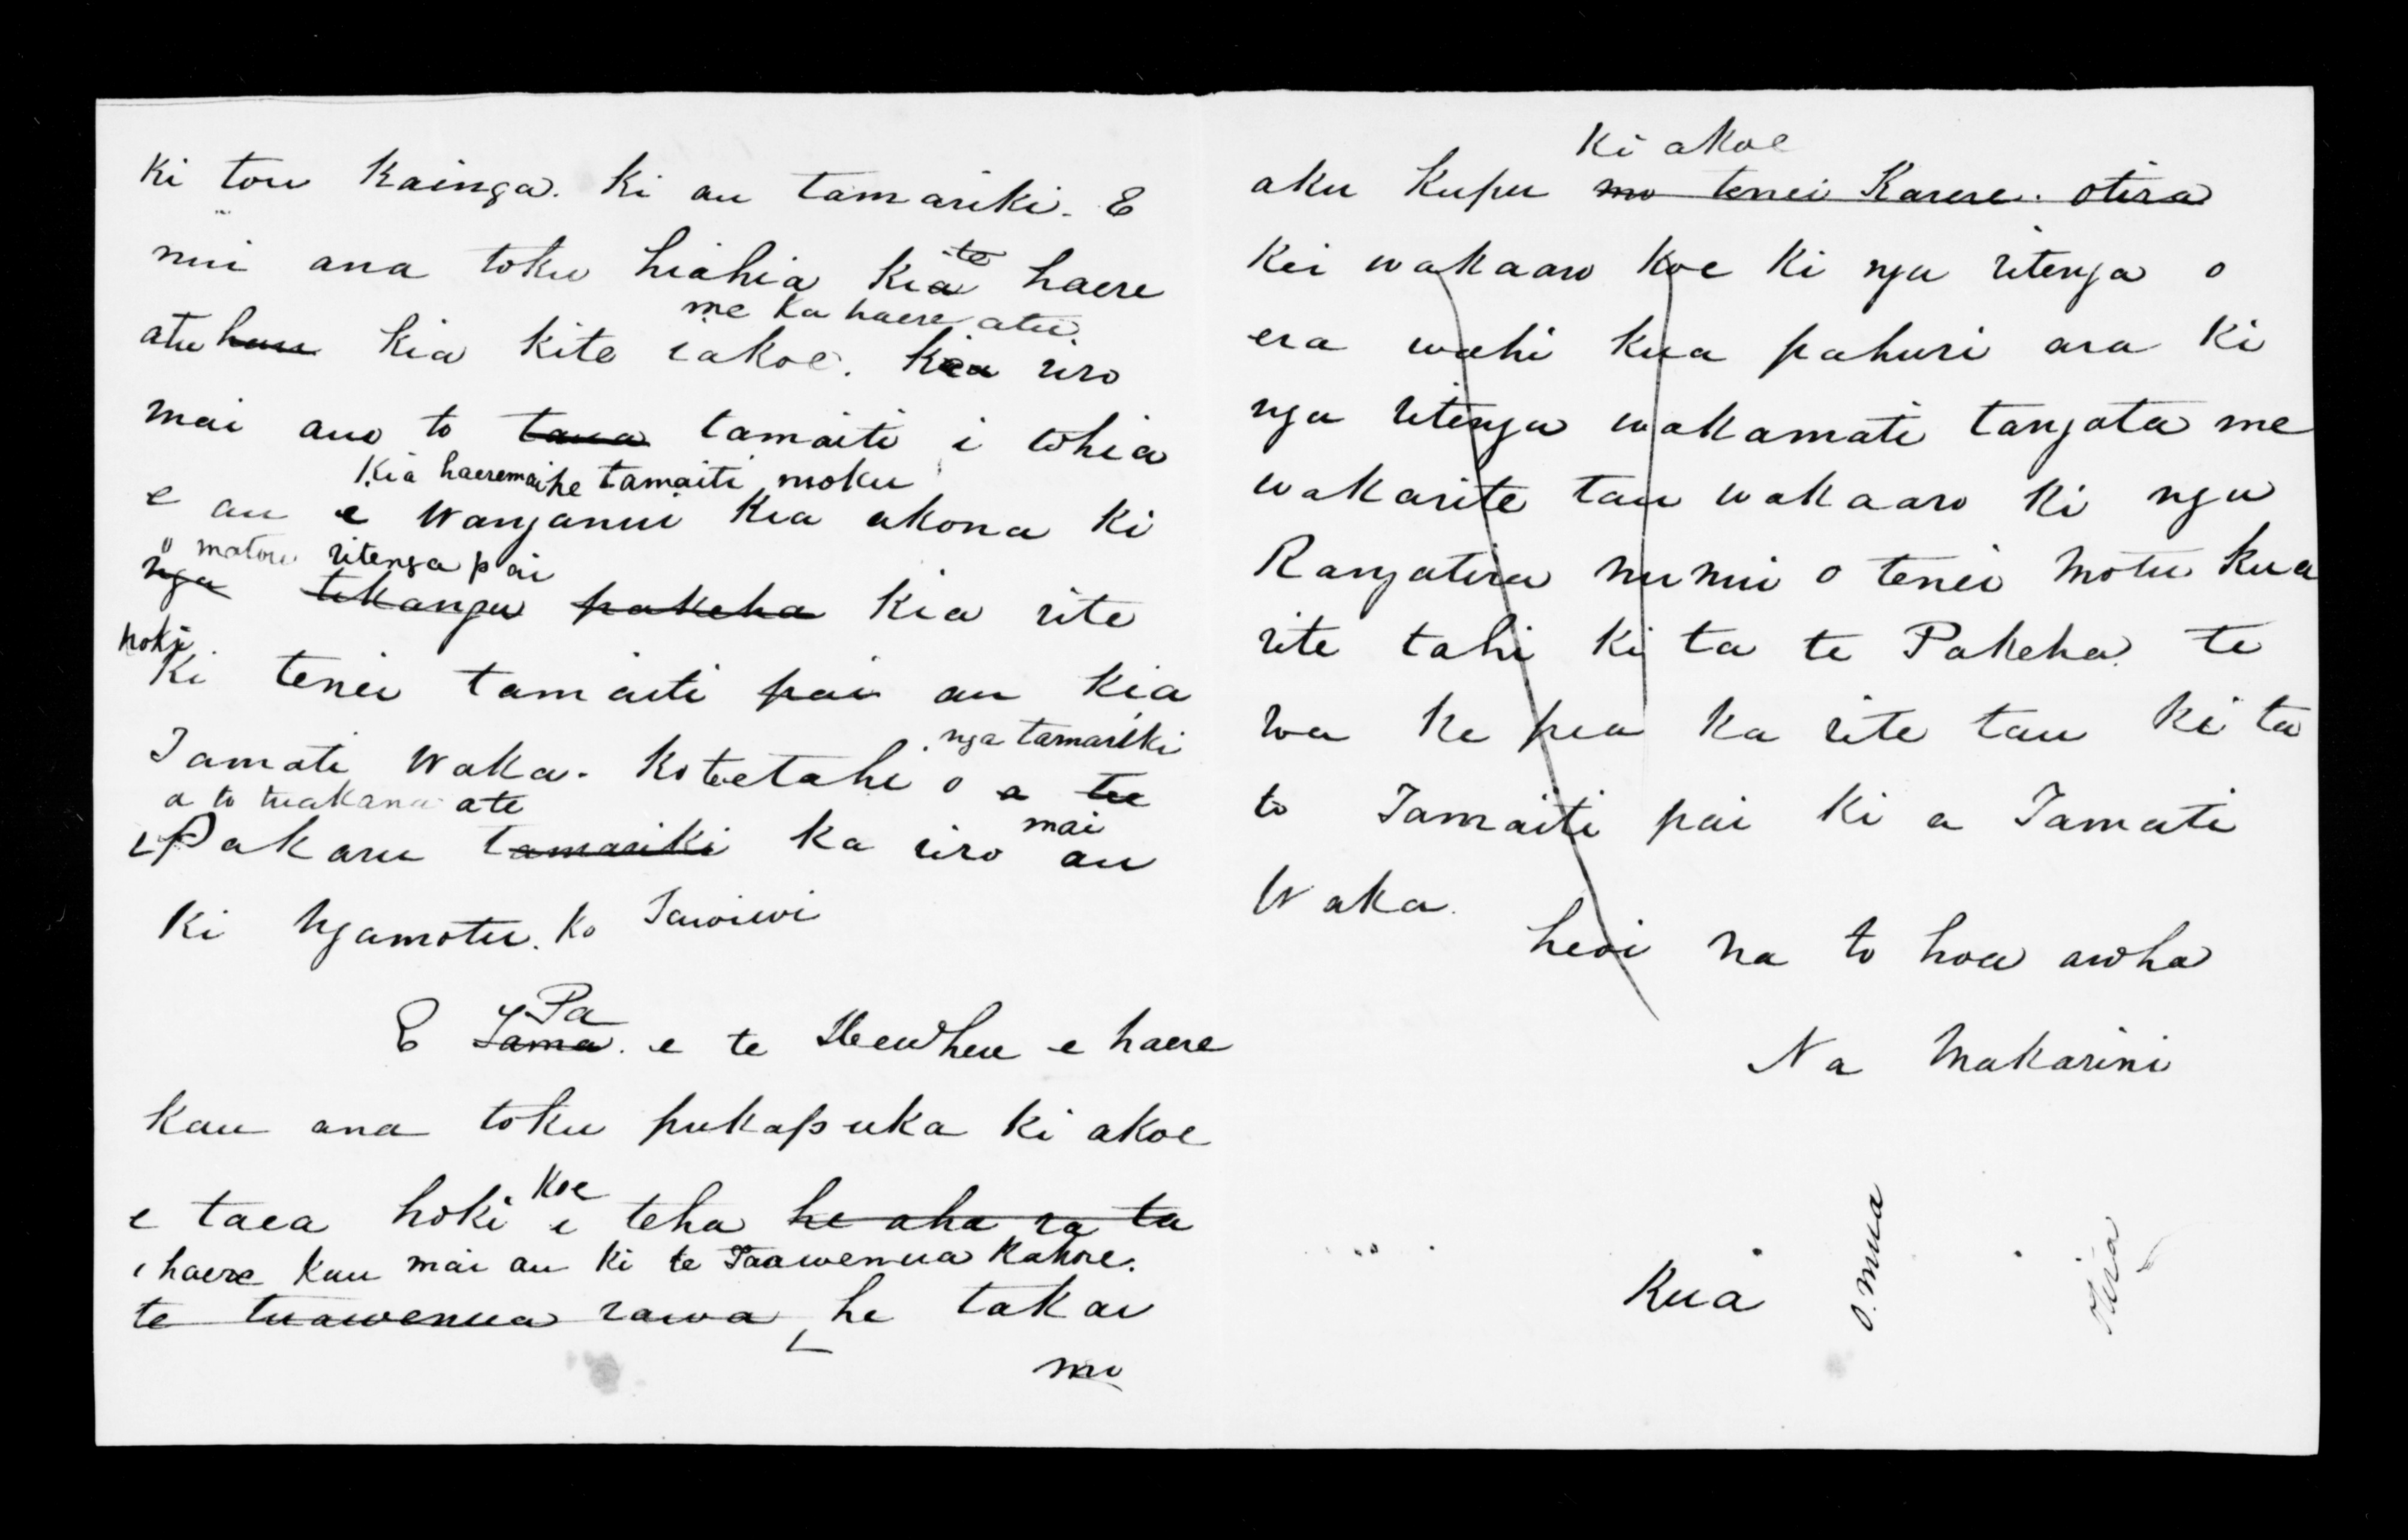 Ki tou Kainga. Ki au tamariki. E
nui ana toku hiahia kia te haere
me ka haere atu.
atu hau kia kite iakoe. kia riro
mai ano to taua tamaiti i tohia
Kia haeremai he tamaiti moku
e au e Wanganui kia akona ki
o matou ritenga pai
nga tikanga pakeha kia rite
hoki
Ki tenei tamaiti pai au kia
nga tamariki
Tamati Waka. Ko tetahi o a
a to tuakana a te
Pakaru tamariki ka riro au
mai
Ki Ngamotu. Ko Tawiwi
Pa
E Tama. e te Heuheu e haere
Kau ana toku pukapuka ki akoe
koe
e taea hoki i teha he aha ra ta
i haere kau mai au ki te Taawenua kahore.
te tuawenua rawa he takai
mo
Ki akoe
aku Kupu mo tenei Karere. otira
Kei wakaaro koe ki nga ritenga o
era wahi kua pahuri ara ki
nga ritenga wakamate tangata me
wakarite tau wakaaro ki nga
Rangatira nunui o tenei motu kua
rite tahi ki ta te Pakeha. te
wa ke pea ka rite tau ki ta
to Tamaiti pai ki a Tamati
Waka.
heoi na to hoa aroha
Na Makarini
Kua
o mua
otira